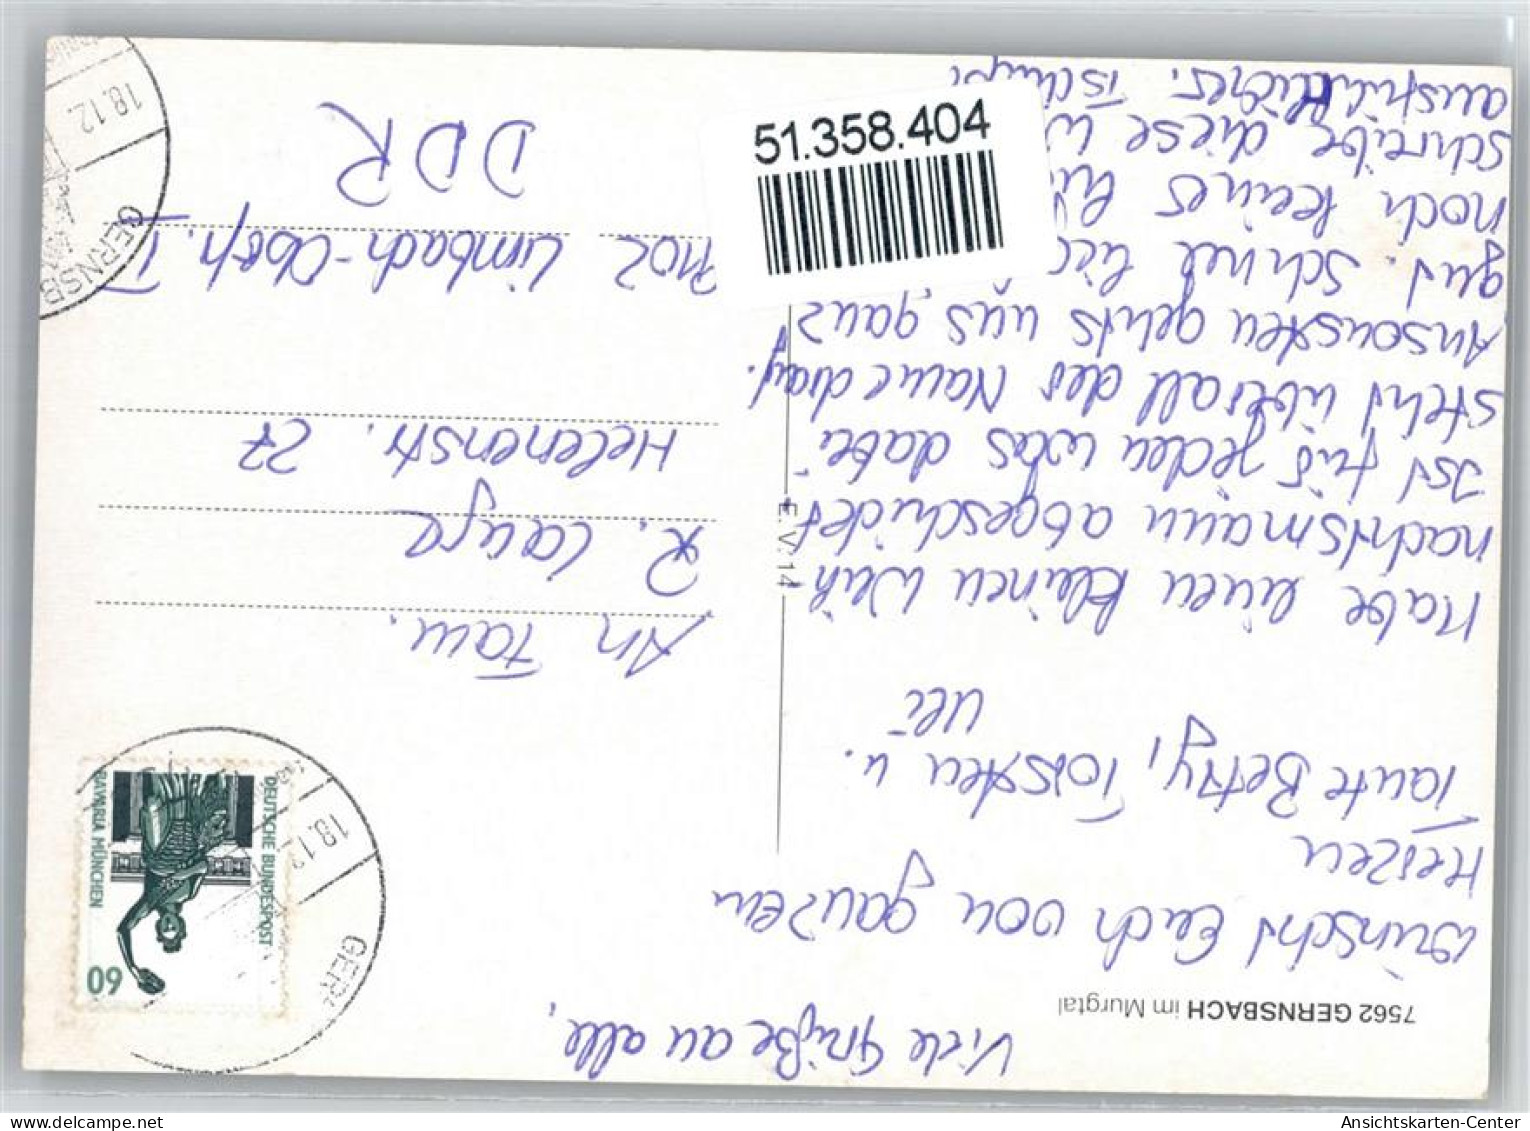 Viele Grüße an alle,
7562 GERNSBACH im Murgtal
wünscht Euch von ganzen
Herzen
Tante Betty, Torsten u.
Uli
Habe einen kleinen Weih-
nachtsmann abgeschickt
Ist für jeden was dabei
steht überall der Name drauf.
Ansonsten gehts uns ganz
gut. Schnee
noch keines
schreibe diese
ausführlicher. Tschüß
E. V. 14
60
DEUTSCHE BUNDESPOST
BAVARIA MÜNCHEN
18.12
GER
An Fam.
R. Lange
Helenenstr. 27
9102 Limbach-Obfr. 1
DDR
GERNSB
18.12.
51.358.404
delcampe.net
Ansichtskarten-Center